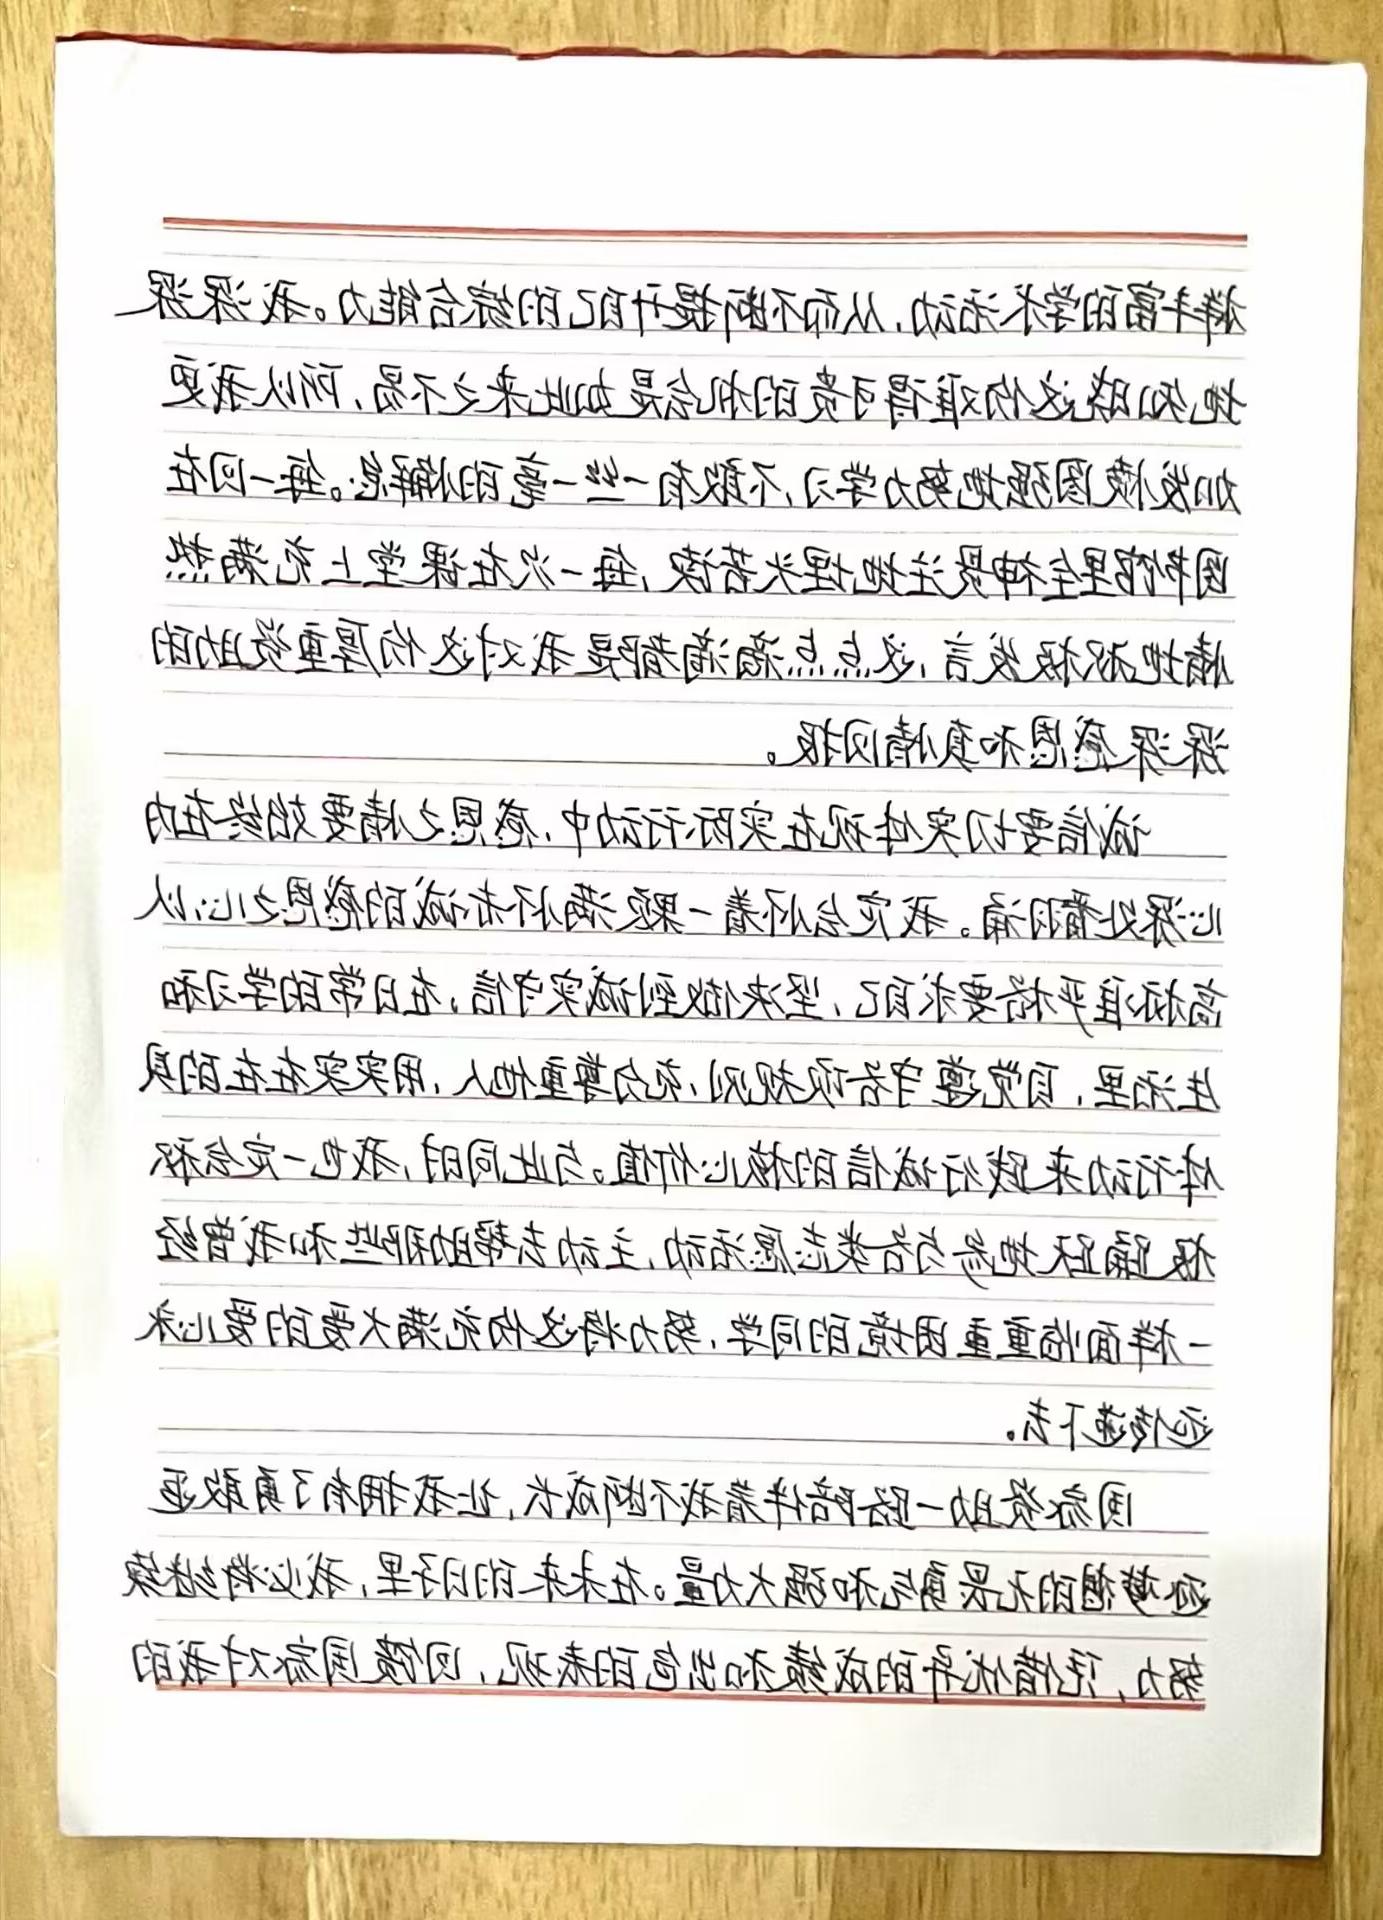 样丰富的学术活动，从而不断提升自己的综合能力。我深深
地知晓这份难得可贵的机会是如此来之不易，所以我更
加发愤图强地努力学习，不敢有一丝一毫的懈怠。每一回在
图书馆里全神贯注地埋头苦读，每一次在课堂上充满热
情地积极发言，这点点滴滴都是我对这份厚重资助的
深深感恩和真情回报。
诚信要切实体现在实际行动中，感恩之情要始终在内
心深处翻涌。我定会怀着一颗满怀赤诚的感恩之心，以
高标准严格要求自己，坚决做到诚实守信，在日常的学习和
生活里，自觉遵守各项规则，充分尊重他人，用实实在在的具
体行动来践行诚信的核心价值。与此同时，我也一定会积
极踊跃地参与各类志愿活动，主动去帮助那些和我曾经
一样面临重重困境的同学，努力将这份充满大爱的爱心永
远传递下去。
国家资助一路陪伴着我不断成长，让我拥有了勇敢追
逐梦想的无畏勇气和强大力量。在未来的日子里，我必将继续
努力，凭借优异的成绩和出色的表现，回馈国家对我的